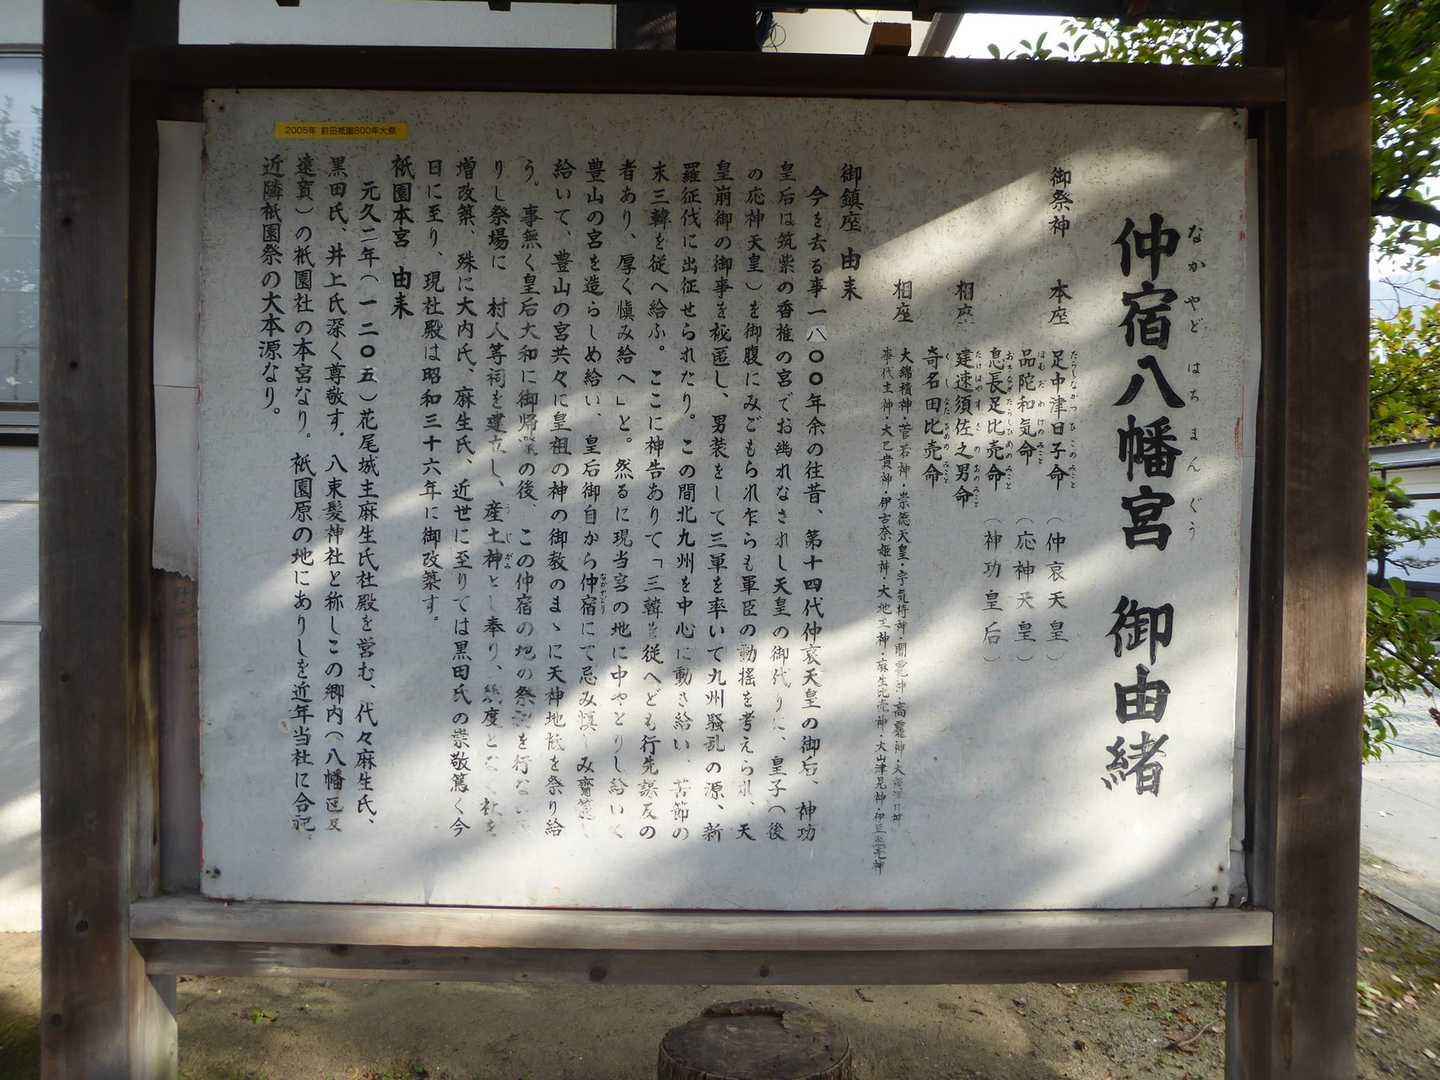 仲宿八幡宮　御由緒
なかやど　はちまんぐう
御祭神　本座　足中津日子命（仲哀天皇）
たらしなかつひこのみこと
品陀和気命（応神天皇）
ほむだわけのみこと
息長足比売命（神功皇后）
おきながたらしひめのみこと
相座　建速須佐之男命
たけはやすさのおのみこと
奇名田比売命
くしなだひめのみこと
相座　大綿積神・菅若神・崇徳天皇・宇気持神・闇龗神・高龗神・大
事代主神・大己貴神・伊古奈姫神・大地主神・麻生比売神・大山津見神・伊
御鎮座　由来
今を去る事一八〇〇年余の往昔、第十四代仲哀天皇の御后、神功
皇后は筑紫の香椎の宮でお幽れなされし天皇の御代りに、皇子（後
の応神天皇）を御腹にみごもられ乍らも軍臣の動揺を考えられ、天
皇崩御の御事を秘匿し、男装をして三軍を率いて九州騒乱の源、新
羅征伐に出征せられたり。この間北九州を中心に動き給い、苦節の
末三韓を従へ給ふ。ここに神告ありて「三韓を従へども行先謀反の
者あり、厚く慎み給へ」と。然るに現当宮の地に中やどりし給いて
豊山の宮を造らしめ給い、皇后御自から仲宿にて忌み慎しみ齋
なかやどり
給いて、豊山の宮共々に皇祖の神の御教のまゝに天神地祇を祭り給
う。事無く皇后大和に御帰の後、この仲宿の地の祭を行な
りし祭場に　村人等祠を建立し、産土神とし奉り、度と社を
うじがみ
増改築、殊に大内氏、麻生氏、近世に至りては黒田氏の崇敬篤く今
日に至り、現社殿は昭和三十六年に御改築す。
祇園本宮　由来
元久二年（一二〇五）花尾城主麻生氏社殿を営む、代々麻生氏、
黒田氏、井上氏深く尊敬す。八束髪神社と称しこの郷内（八幡区及
遠賀）の祇園社の本宮なり。祇園原の地にありしを近年当社に合祀。
近隣祇園祭の大本源なり。
2005年 前田祇園800年大祭